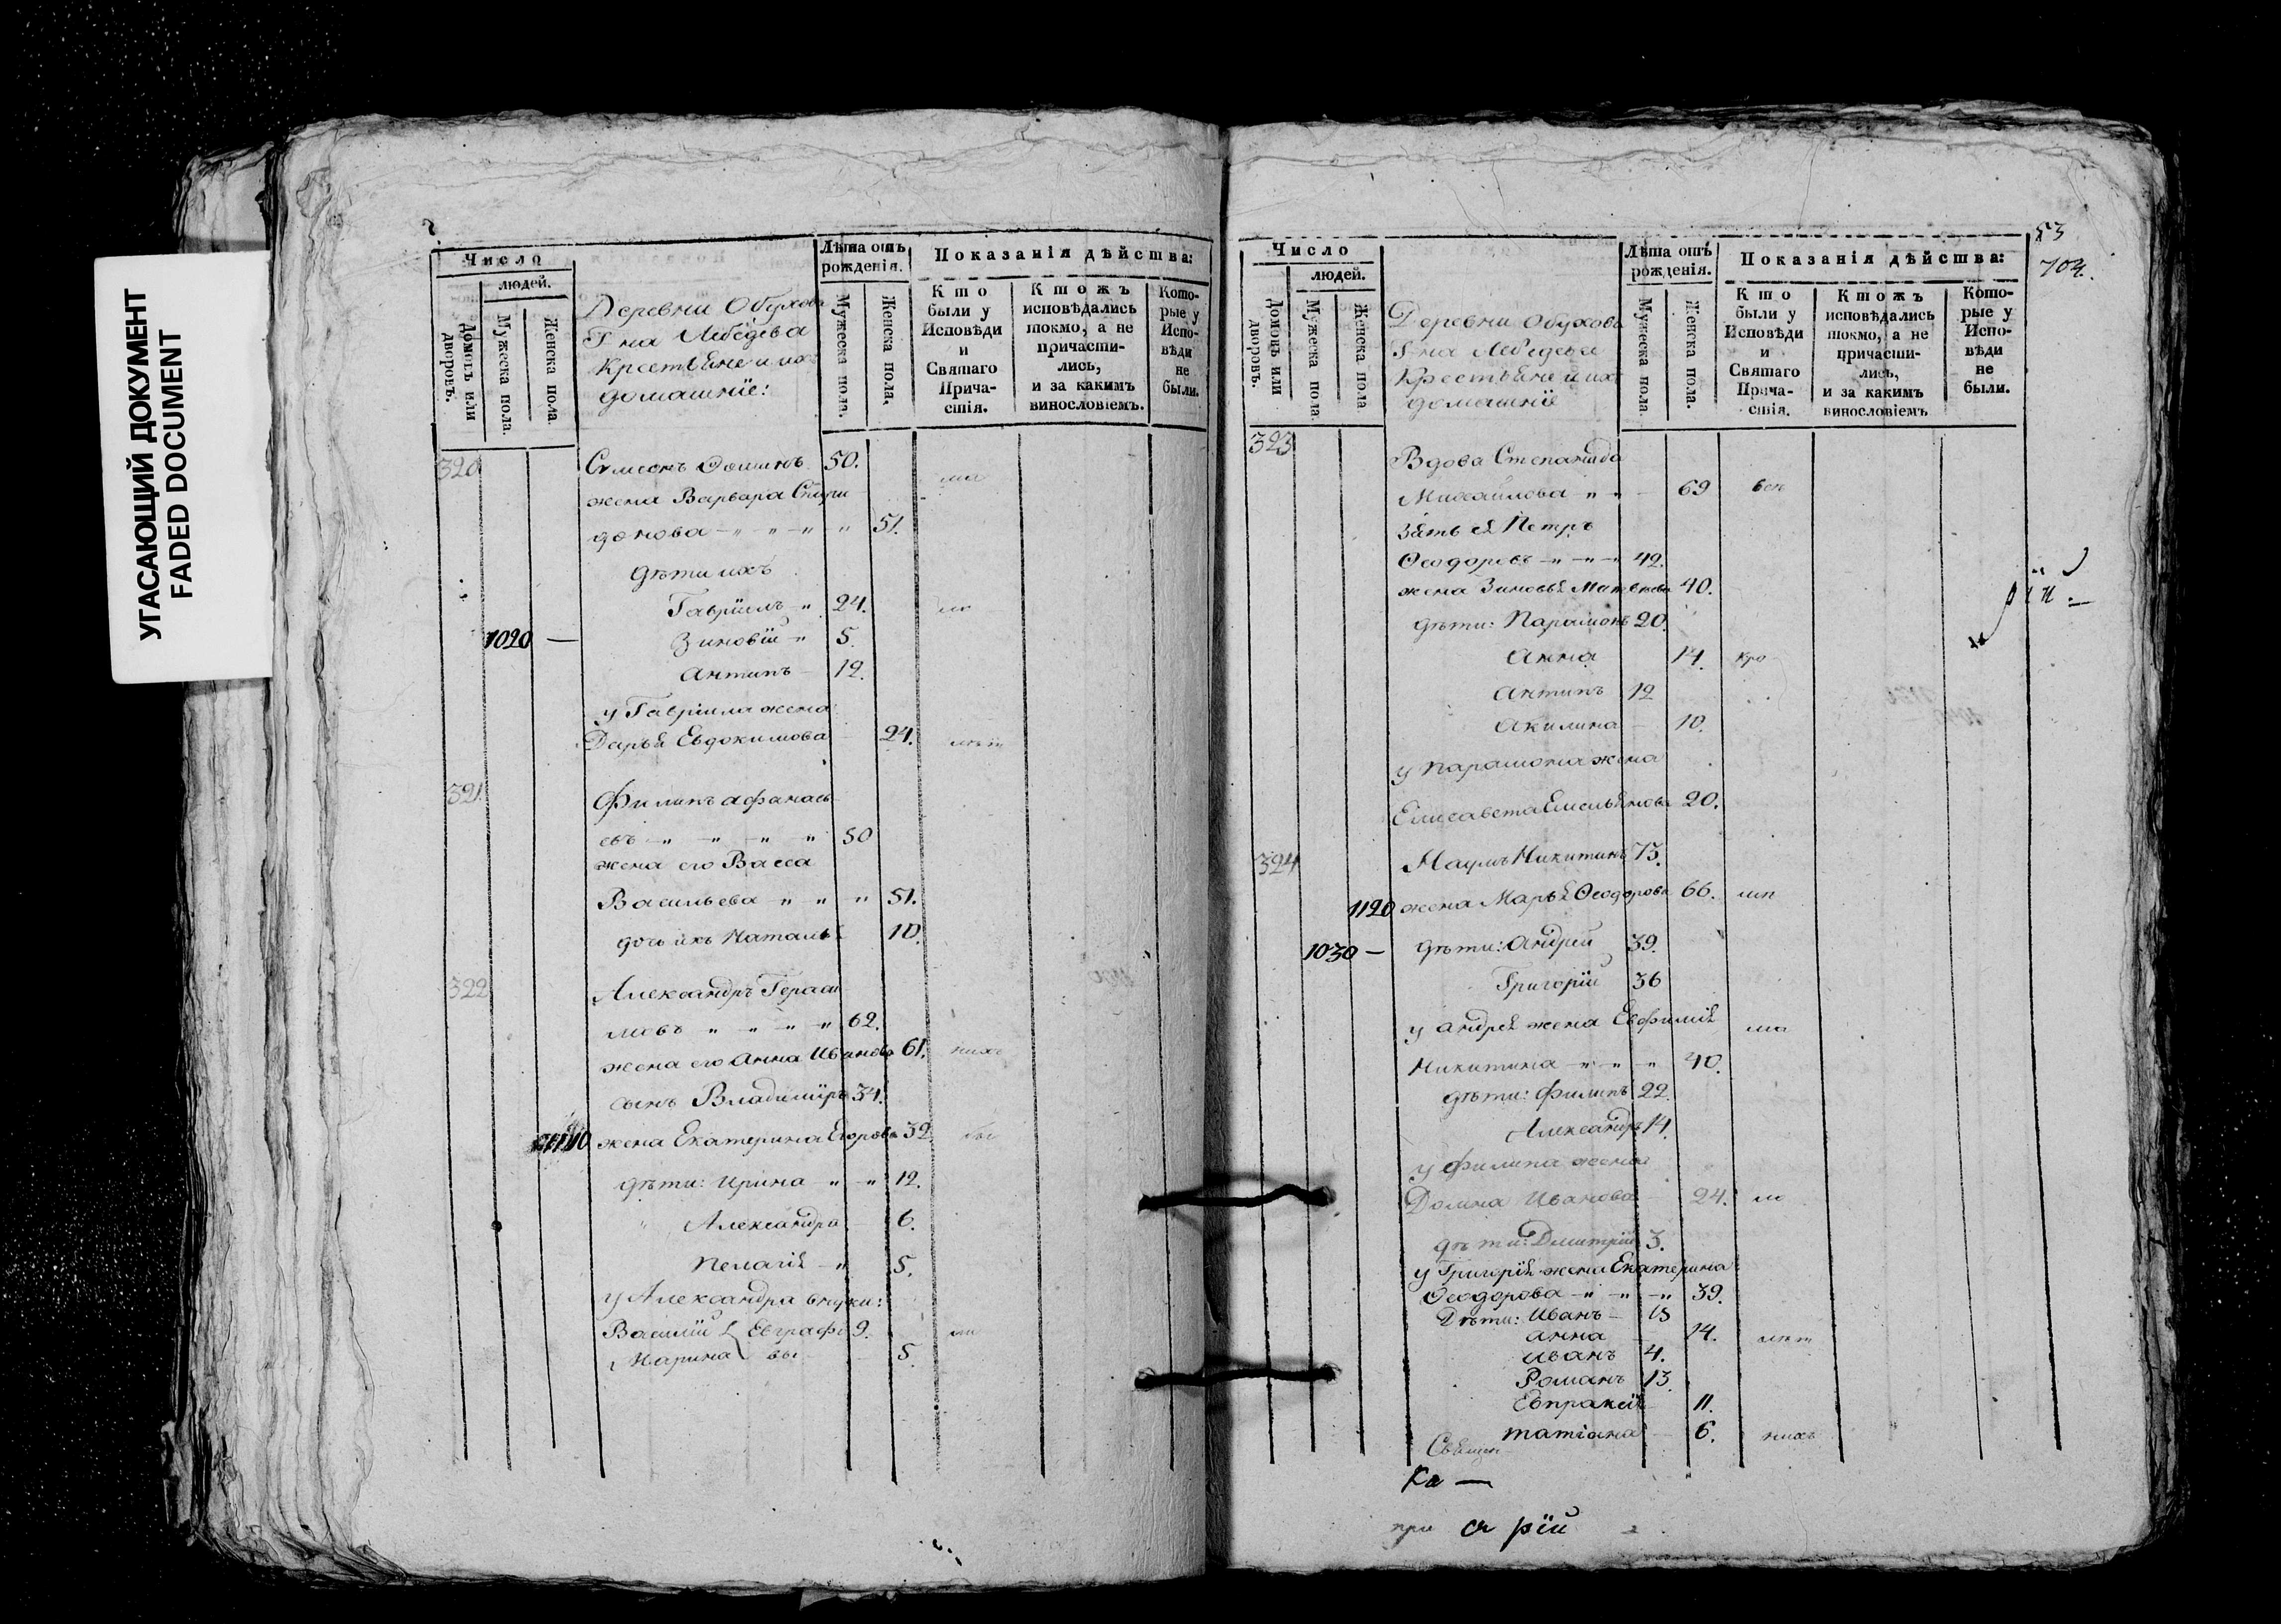 УГАСАЮЩИЙ ДОКУМЕНТ
FADED DOCUMENT
Число
людей.
Домовъ или дворовъ.
Мужеска пола.
Женска пола.
Деревни Обухова
Г на Лебедева
Крестьяне и ихъ
домашніе:
Лѣта отъ рожденія.
Мужеска пола.
Женска пола.
Показанія дѣйства:
Кто были у Исповѣди и Святаго Причастія.
Ктожъ исповѣдались токмо, а не причастились, и за какимъ винословіемъ.
Которые у Исповѣди не были.
320 Симеонъ 50.
жена Варвара Спири
донова 51.
дѣти ихъ
Гавріилъ 24.
1020 — Зиновій 5.
Антипъ 12.
у Гавріила жена
Дарья Евдокимова 24.
321. Филипъ Афанась
евъ 50
жена его Васса
Васильева 51.
дочь ихъ Наталья 10.
322 Александръ Гераси
мовъ 62.
жена его Анна Иванова 61. нихъ
сынъ Владиміръ 34.
жена Екатерина Егорова 32
дѣти: Ирина 12.
Александра 6.
Пелагія 5.
у Александра внуки:
Василій Евграфо 9.
Марина вы 5.
53
704.
Число
людей.
Домовъ или дворовъ.
Мужеска пола.
Женска пола
Деревни Обухова
Г на Лебедева
Крестьяне и ихъ
домашніе
Лѣта отъ рожденія.
Мужеска пола.
Женска пола.
Показанія дѣйства:
Кто были у Исповѣди и Святаго Причастія.
Ктожъ исповѣдались токмо, а не причастились, и за какимъ винословіемъ
Которые у Исповѣди не были.
323 Вдова Степанида
Михайлова 69
Зять ея Петръ
Ѳеодоровъ 42.
жена Зиновья Матвѣева 40.
дѣти: Парамонъ 20.
Анна 14.
Антипъ 12
Акилина 10.
у Парамона жена
Елисавета Емельянова 20.
324 Наумъ Никитинъ 73.
1120 жена Марья Ѳеодорова 66.
1030 — дѣти: Андрей 39.
Григорій 36
у Андрея жена Евфимія
Никитина 40.
дѣти: Филипъ 22.
Александръ 14.
у Филипа жена
Домна Иванова 24.
дѣти: Дмитрій 3.
у Григорія жена Екатерина
Ѳеодорова 39.
Дѣти: Иванъ 15
Анна 14.
Иванъ 4.
Романъ 13.
Евпраксія 11.
Татіана 6. нихъ
Священ
Ка —
при рій